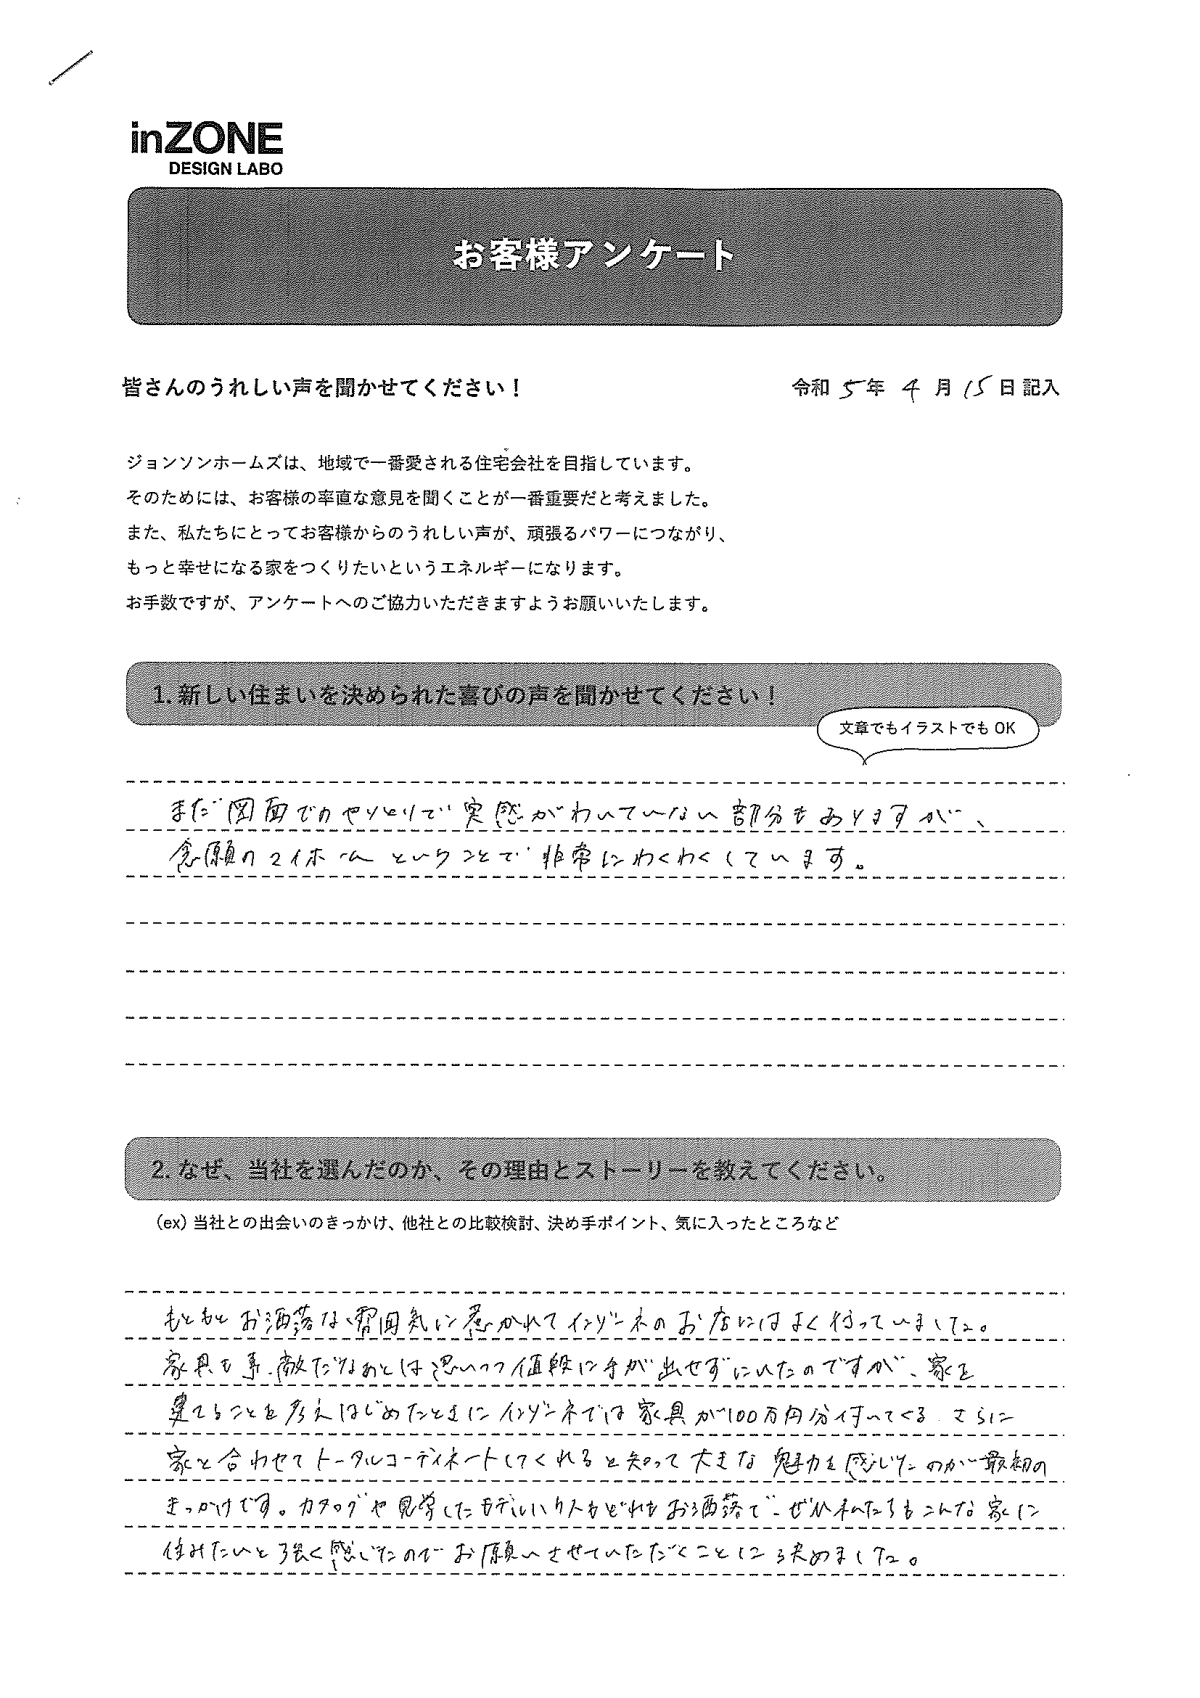 inZONE
DESIGN LABO
お客様アンケート
皆さんのうれしい声を聞かせてください！
令和 5 年 4 月 15 日 記入
ジョンソンホームズは、地域で一番愛される住宅会社を目指しています。
そのためには、お客様の率直な意見を聞くことが一番重要だと考えました。
また、私たちにとってお客様からのうれしい声が、頑張るパワーにつながり、
もっと幸せになる家をつくりたいというエネルギーになります。
お手数ですが、アンケートへのご協力いただきますようお願いいたします。
1. 新しい住まいを決められた喜びの声を聞かせてください！
文章でもイラストでも OK
まだ図面でのやりとりで実感がわいていない部分もありますが、
念願のマイホームということで非常にわくわくしています。
2. なぜ、当社を選んだのか、その理由とストーリーを教えてください。
（ex）当社との出会いのきっかけ、他社との比較検討、決め手ポイント、気に入ったところなど
もともとお洒落な雰囲気に惹かれてインゾーネのお店にはよく行っていました。
家具も素敵だなあとは思いつつ値段に手が出せずにいたのですが、家を
建てることを考えはじめたときにインゾーネでは家具が100万円分付いてくる、さらに
家と合わせてトータルコーディネートしてくれると知って大きな魅力を感じたのが最初の
きっかけです。カタログや見学したモデルハウスもどれもお洒落で、ぜひ私たちもこんな家に
住みたいと強く感じたのでお願いさせていただくことに決めました。